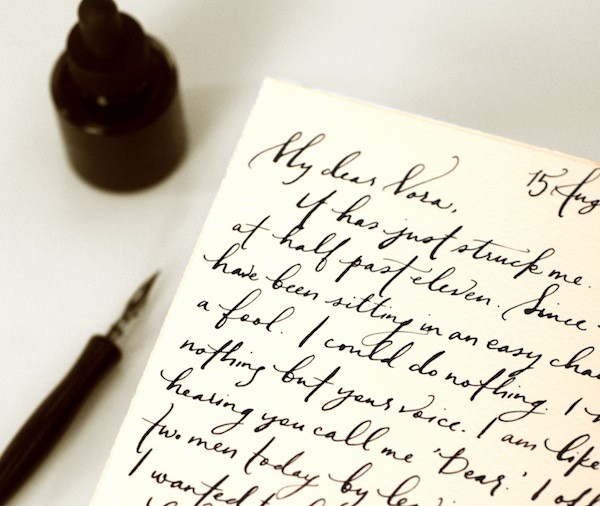 15 Aug
My dear Nora,
It has just struck me.
at half past eleven. Since
have been sitting in an easy chai
a fool. I could do nothing. I h
nothing but your voice. I am like
hearing you call me 'Dear.' I off
two men today by lea
I wanted to